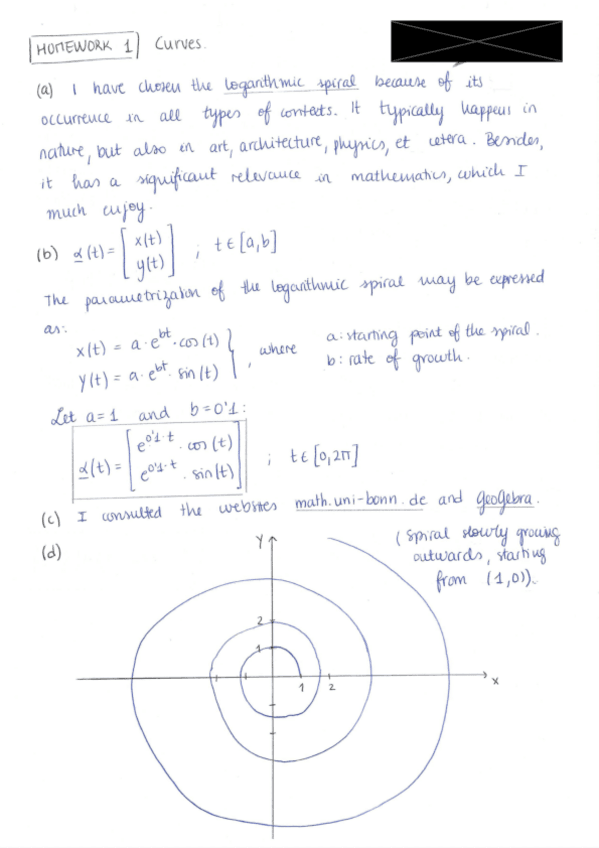 HOMEWORK 1 Curves.
(a) I have chosen the logarithmic spiral because of its
occurrence in all types of contexts. It typically happens in
nature, but also in art, architecture, physics, et cetera. Besides,
it has a significant relevance in mathematics, which I
much enjoy.
(b) α(t) = [x(t) y(t)] ; t ∈ [a,b]
The parametrization of the logarithmic spiral may be expressed
as:
x(t) = a·e^bt·cos(t)
y(t) = a·e^bt·sin(t)
, where
a: starting point of the spiral.
b: rate of growth.
Let a=1 and b=0'1:
α(t) = [e^0'1·t · cos(t) e^0'1·t · sin(t)] ; t ∈ [0,2π]
(c) I consulted the websites math.uni-bonn.de and GeoGebra.
(d)
(Spiral slowly growing
outwards, starting
from (1,0)).
Y
2
1
1 2
x